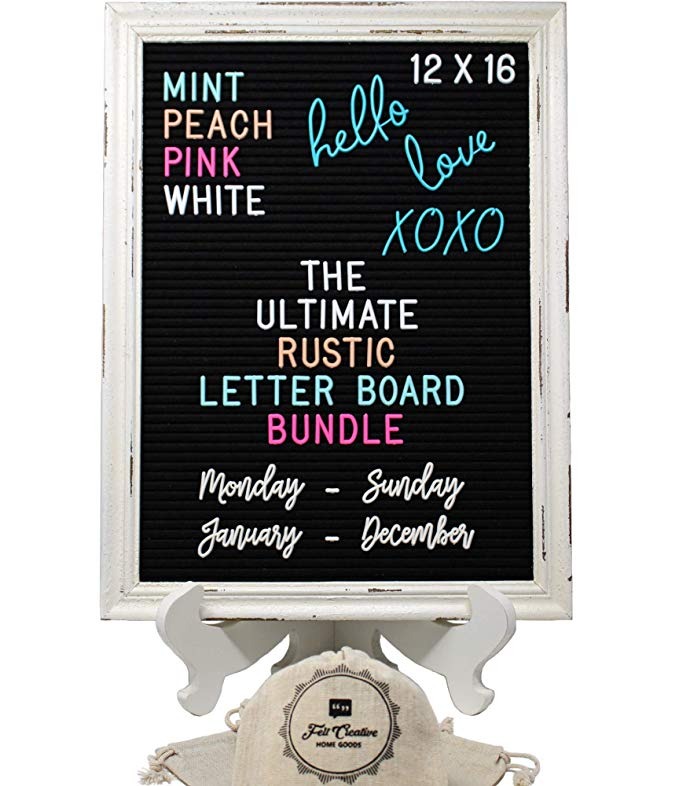 MINT
PEACH
PINK
WHITE
12 X 16
hello
love
XOXO
THE
ULTIMATE
RUSTIC
LETTER BOARD
BUNDLE
Monday - Sunday
January - December
Felt Creative
HOME GOODS